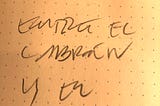 ENTRE EL
CABRÓN
Y EL